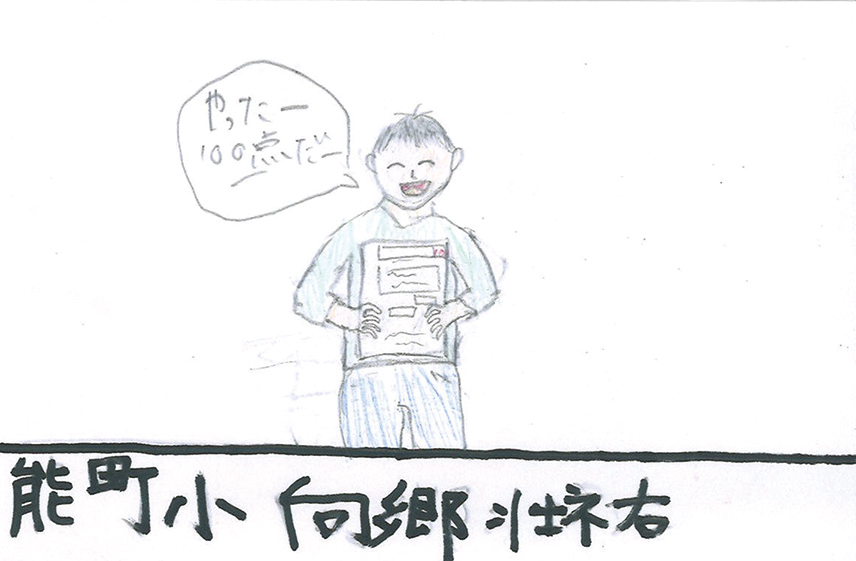 やったー
100点だー
能町小 向郷壮祐